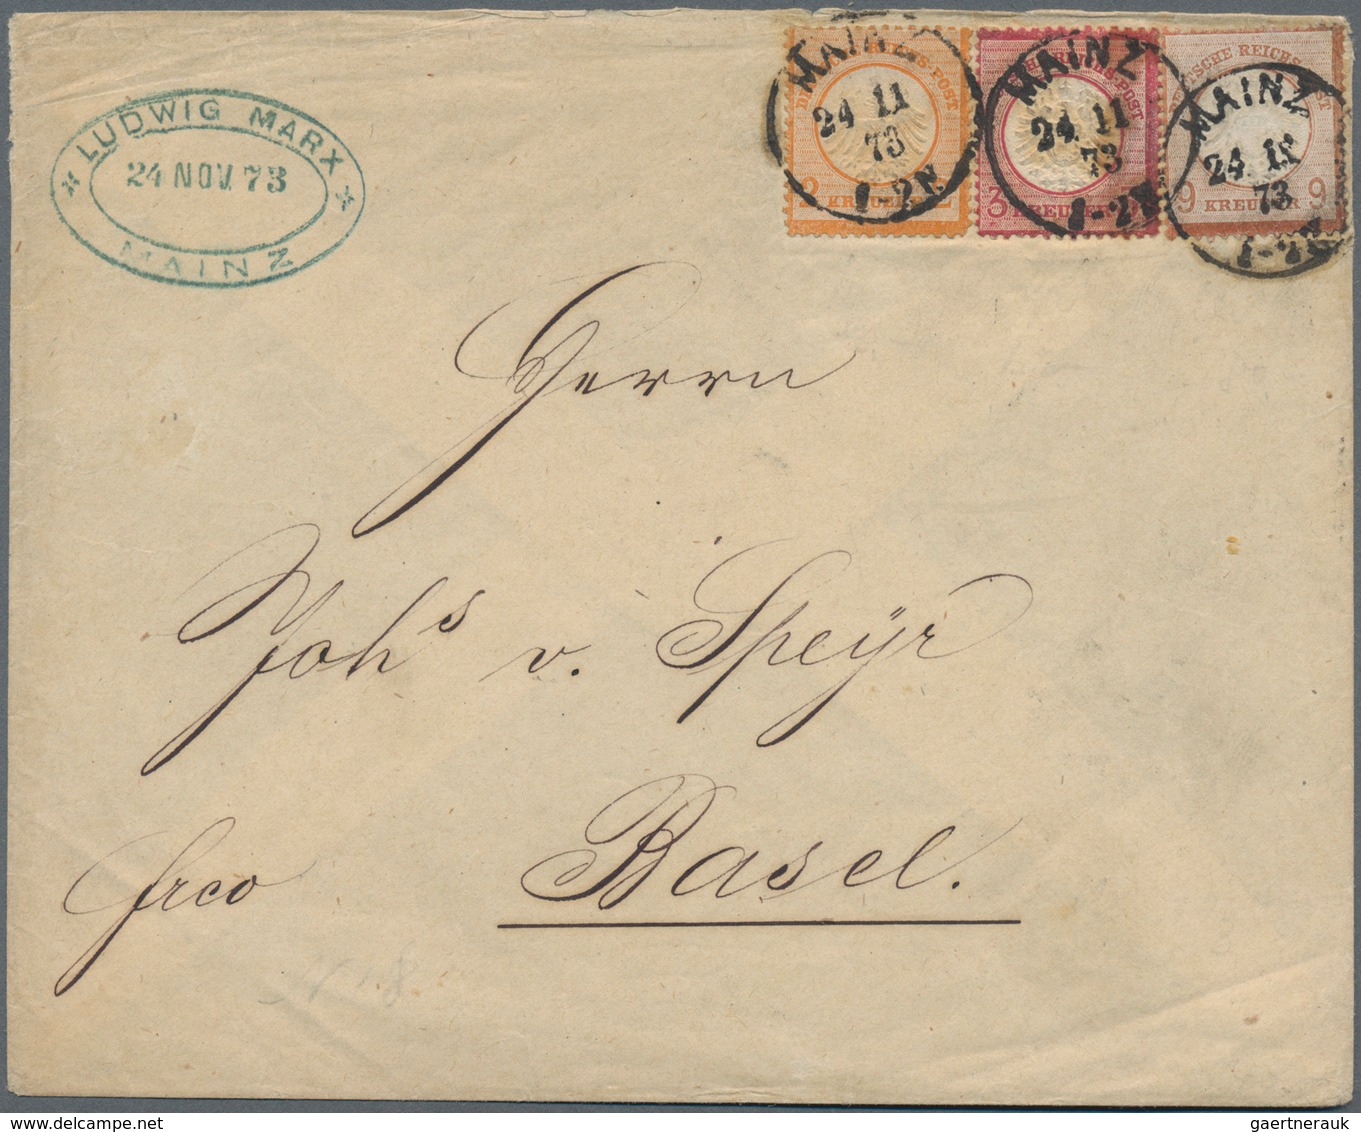 * LUDWIG MARX *
24 NOV. 73
MAINZ
DEUTSCHE REICHS-POST
2 KREUZER 2
MAINZ
24 11
73
1-2N
3 KREUZER
MAINZ
24 11
73
1-2N
DEUTSCHE REICHS POST
9 KREUZER 9
MAINZ
24 11
73
1-2N
Herrn
Johs v. Speyr
Basel.
frco
gaertnerauk